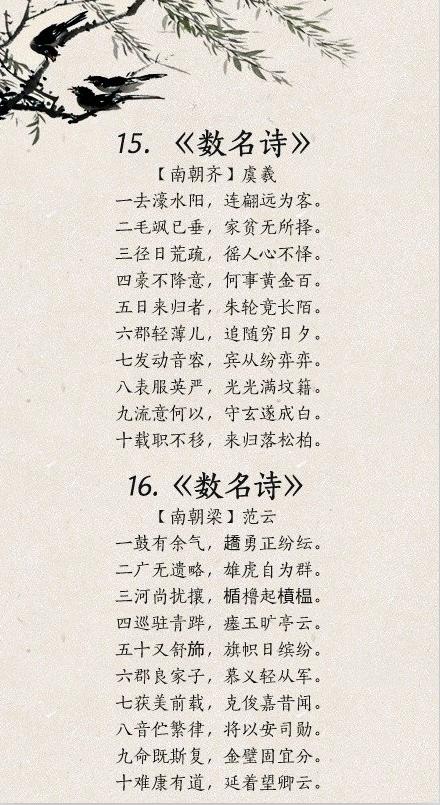 15.《数名诗》
【南朝齐】虞羲
一去濠水阳，连翩远为客。
二毛飒已垂，家贫无所择。
三径日荒疏，徭人心不怿。
四豪不降意，何事黄金百。
五日来归者，朱轮竟长陌。
六郡轻薄儿，追随穷日夕。
七发动音容，宾从纷弈弈。
八表服英严，光光满坟籍。
九流意何以，守玄遂成白。
十载职不移，来归落松柏。
16.《数名诗》
【南朝梁】范云
一鼓有余气，趫勇正纷纭。
二广无遗略，雄虎自为群。
三河尚扰攘，楯橹起櫍榅。
四巡驻青跸，瘗玉旷亭云。
五十又舒旆，旗帜日缤纷。
六郡良家子，慕义轻从军。
七获美前载，克俊嘉昔闻。
八音伫繁律，将以安司勋。
九命既斯复，金璧固宜分。
十难康有道，延着望卿云。